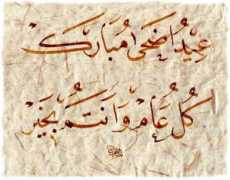 عِيدُ اَضْحَى مُبَارَك
كُلُّ عَامٍ وَاَنْتُمْ بِخَيْرٍ